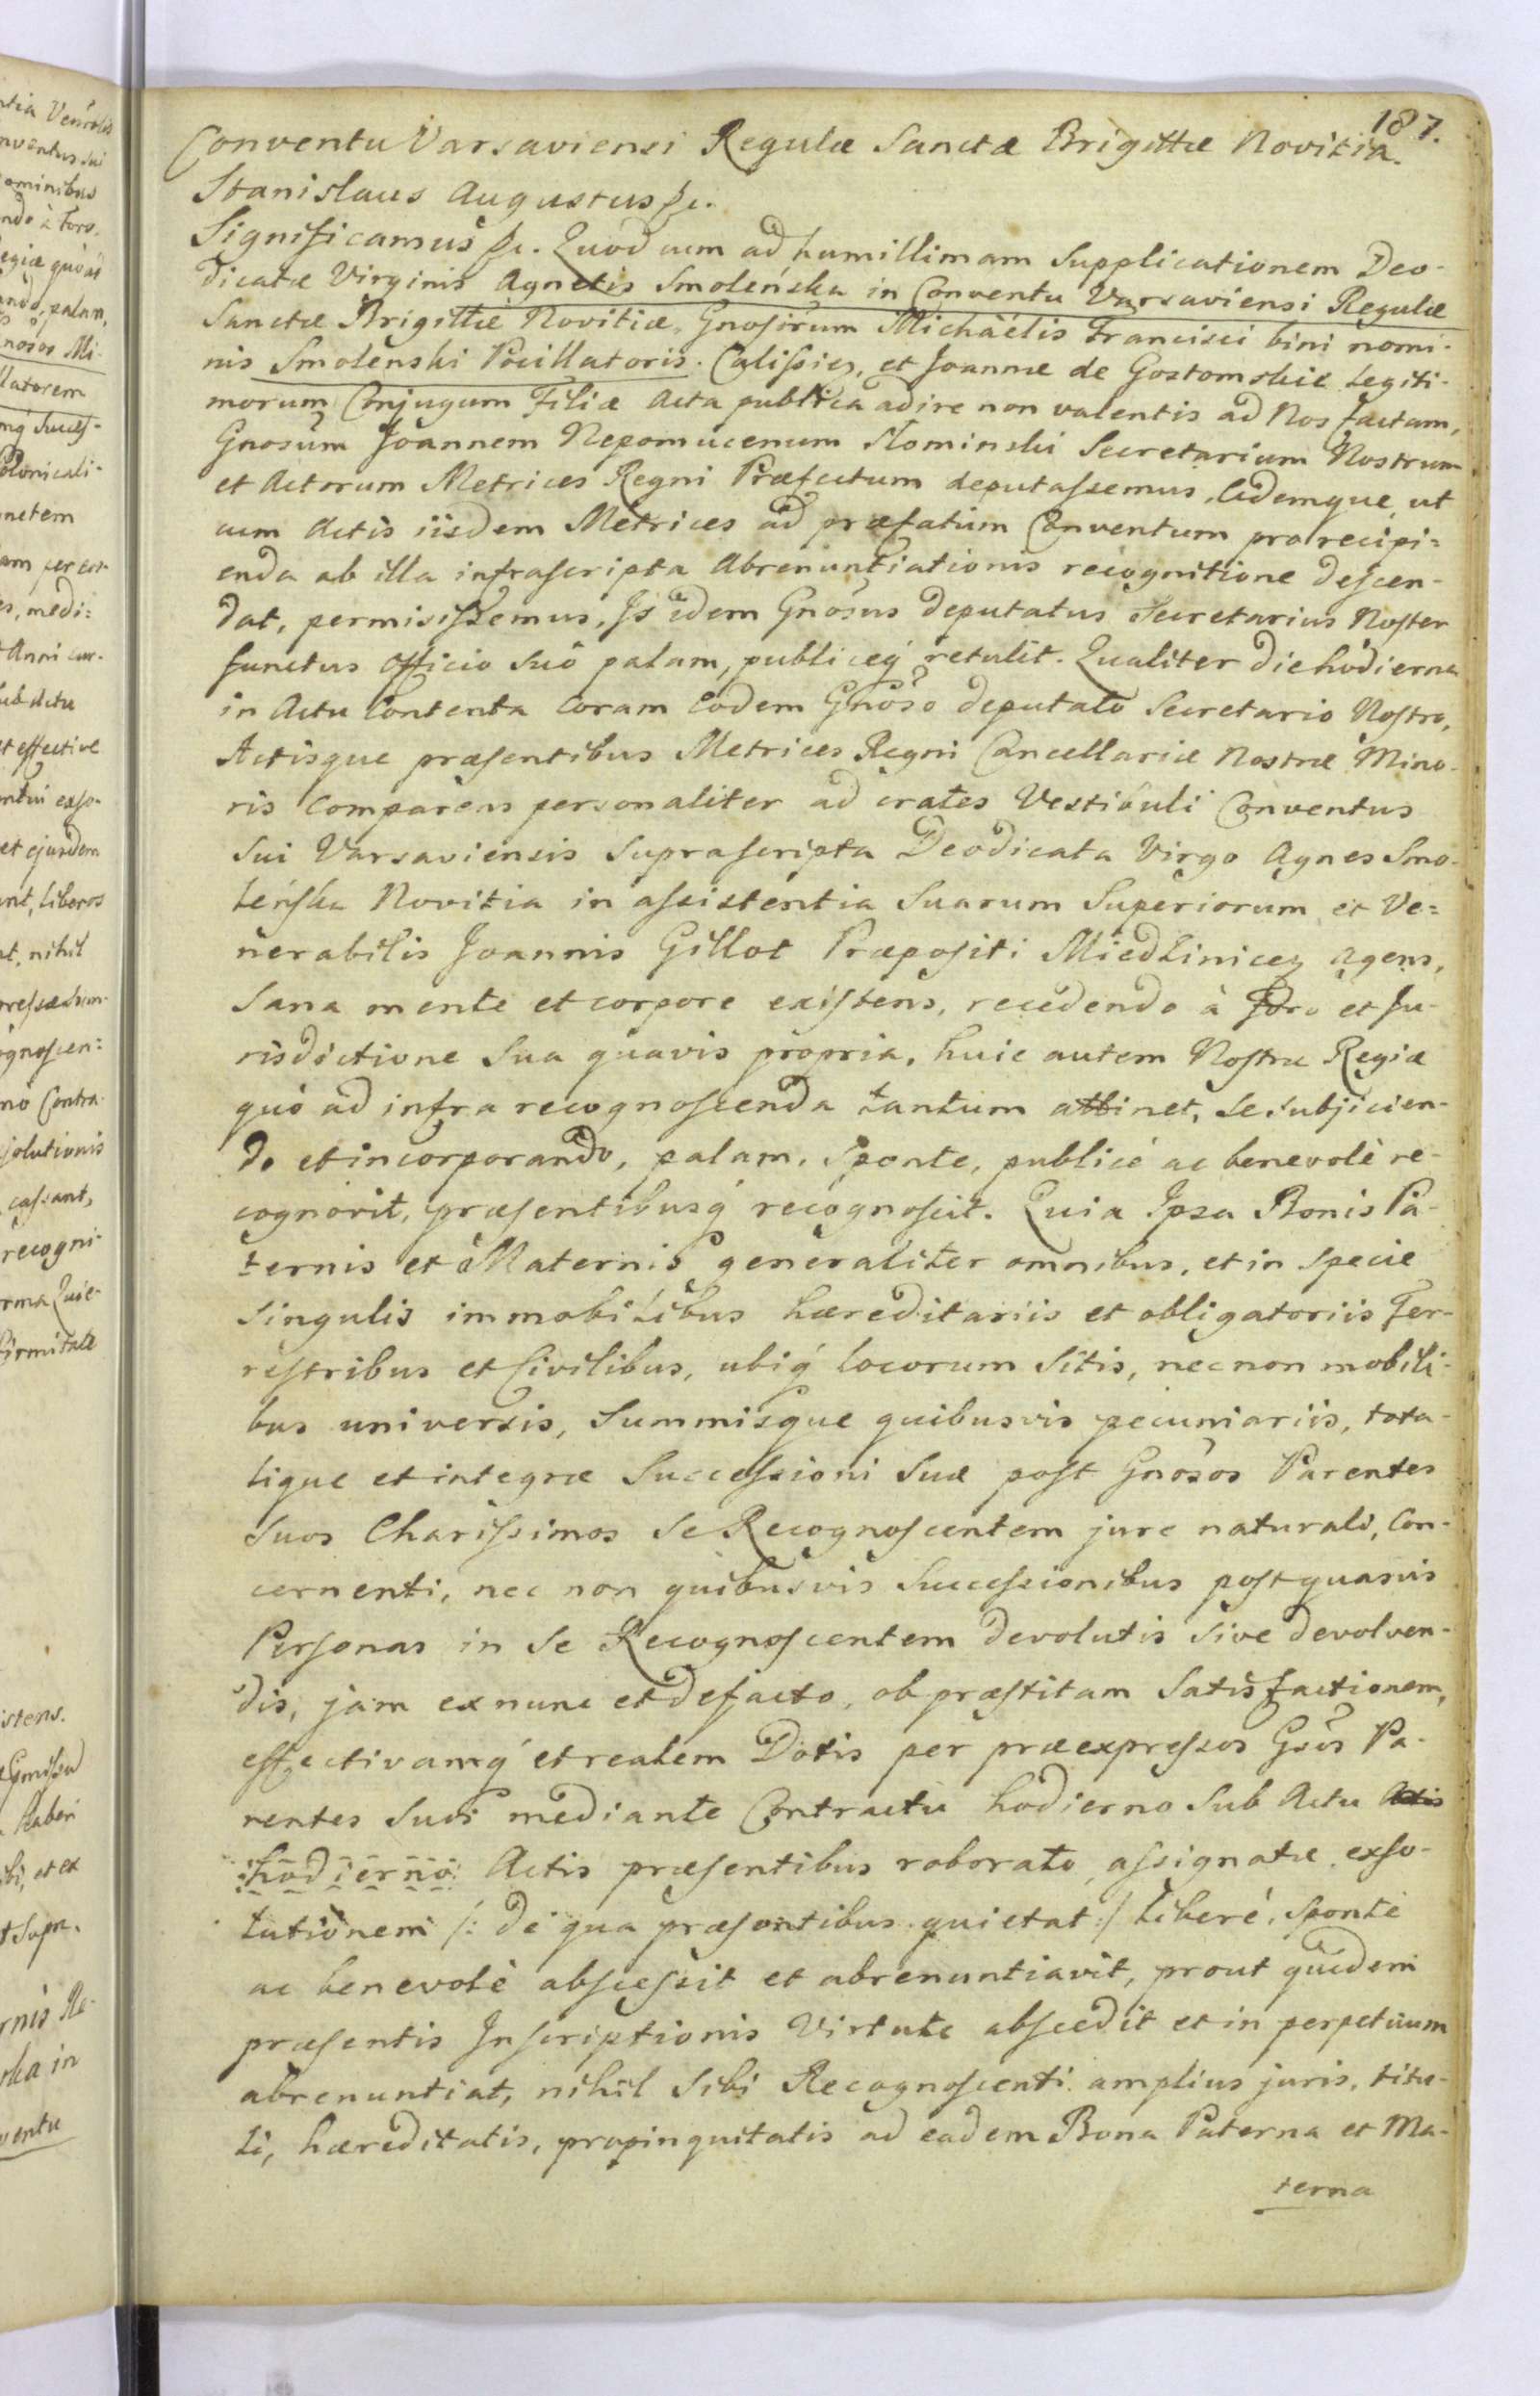 187.
Conventu Varsaviensi Regulæ Sanctæ Brigittæ Novitia.
Stanislaus Augustus &c.
Significamus &c. Quod cum ad humillimam Supplicationem Deo-
dicatæ Virginis Agnetis Smoleńska in Conventu Varsaviensi Regulæ
Sanctæ Brigittæ Novitiæ, Gnosorum Michaelis Francisci bini nomi-
nis Smolenski Pocillatoris Calissien, et Joannæ de Gostomskie Legiti-
morum Conjugum Filiæ Acta publica adire non valentis ad Nos factam,
Gnosum Joannem Nepomucenum Słominski Secretarium Nostrum
et Actorum Metrices Regni Præfectum deputassemus, Eidemque, ut
cum Actis iisdem Metrices ad præfatum Conventum pro recipi=
enda ab illa infrascripta Abrenuntiationis recognitione descen-
dat, permisissemus, Is idem Gnosus deputatus Secretarius Noster
functus Officio Suo palam, publiceq́ retulit. Qualiter die hodierna
in Actu Contenta Coram Eodem Gnoso deputato Secretario Nostro,
Actisque præsentibus Metrices Regni Cancellariæ Nostræ Mino-
ris Comparens personaliter ad crates Vestibuli Conventus
Sui Varsaviensis Suprascripta Deodicata Virgo Agnes Smo-
leńska Novitia in assistentia Suarum Superiorum et Ve=
nerabilis Joannis Gillot Præpositi Miedzinicen agens,
Sana mente et corpore existens, recedendo à Foro et Ju-
risdictione Sua quavis propria, huic autem Nostræ Regiæ
quò ad infra recognoscenda tantum attinet, se subjicien-
do et incorporando, palam, Sponte, publicè ac benevolè re-
cognovit, præsentibusq́ recognoscit. Quia Ipsa Bonis Pa-
ternis et Maternis generaliter omnibus, et in Specie
Singulis immobilibus hæreditariis et obligatoriis Ter-
restribus et Civilibus, ubiq́ locorum Sitis, nec non mobili-
bus universis, Summisque quibusvis pecuniariis, tota-
lique et integræ Successioni Suæ post Gnosos Parentes
Suos Charissimos Se Recognoscentem jure naturali, Con-
cernenti, nec non quibusvis Successionibus post quasvis
Personas in Se Recognoscentem devolutis sive devolven-
dis, jam ex nunc et de facto, ob præstitam Satisfactionem,
effectivamq́ et realem Dotis per præexpressos Gsos Pa-
rentes Suos mediante Contractu hodierno Sub Actu Actis
hodierno Actis præsentibus roborato assignatæ, exso-
lutionem /: de qua præsentibus quietat :/ liberè, Spontè
ac benevolè abscessit et abrenuntiavit, prout quidem
præsentis Inscriptionis Virtute abscedit et in perpetuum
abrenuntiat, nihil Sibi Recognoscenti amplius juris, titu-
li, hæreditatis, propinquitatis ad eadem Bona Paterna et Ma-
terna